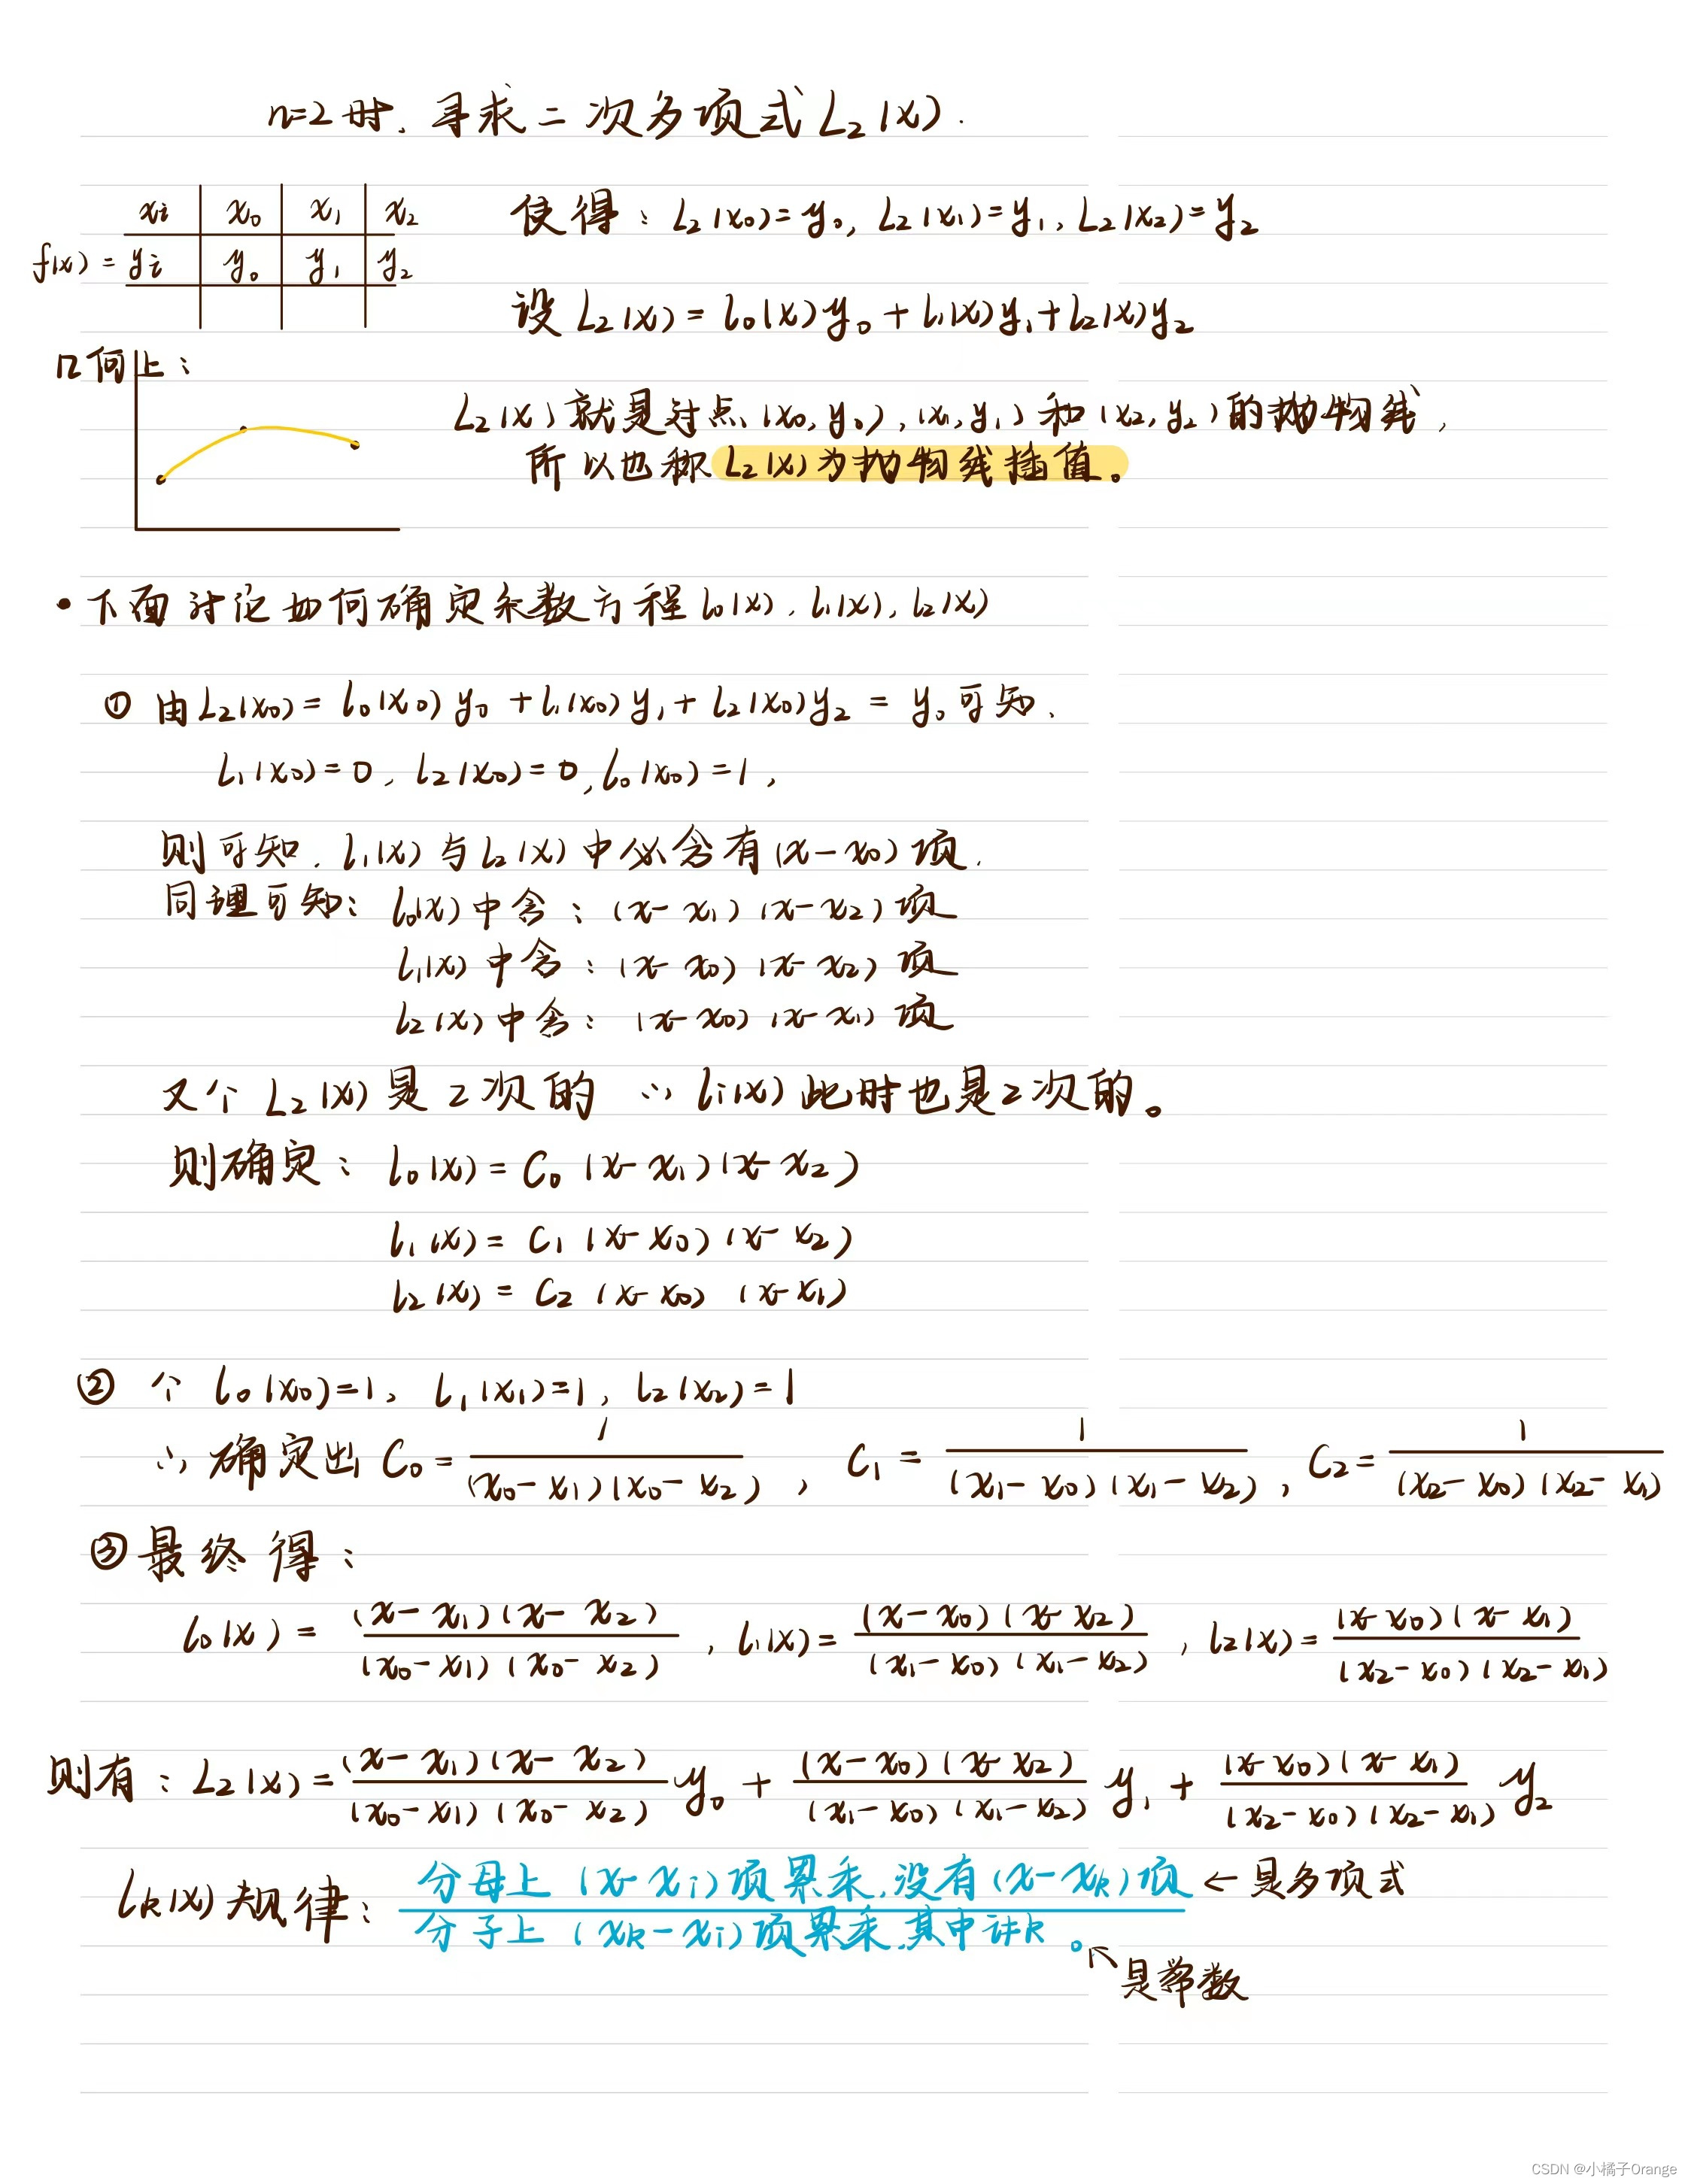 n=2时, 寻求二次多项式L₂(x).
xᵢ x₀ x₁ x₂
f(x)=yᵢ y₀ y₁ y₂
使得: L₂(x₀)=y₀, L₂(x₁)=y₁, L₂(x₂)=y₂
设 L₂(x)=l₀(x)y₀+l₁(x)y₁+l₂(x)y₂
几何上:
L₂(x)就是过点(x₀,y₀),(x₁,y₁)和(x₂,y₂)的抛物线,
所以也称L₂(x)为抛物线插值。
•下面讨论如何确定系数方程l₀(x), l₁(x), l₂(x)
① 由L₂(x₀)=l₀(x₀)y₀+l₁(x₀)y₁+l₂(x₀)y₂=y₀可知,
l₁(x₀)=0, l₂(x₀)=0, l₀(x₀)=1,
则可知, l₁(x)与l₂(x)中必含有(x-x₀)项,
同理可知: l₀(x)中含: (x-x₁)(x-x₂)项
l₁(x)中含: (x-x₀)(x-x₂)项
l₂(x)中含: (x-x₀)(x-x₁)项
又个 L₂(x)是2次的 ∴ lᵢ(x)此时也是2次的。
则确定: l₀(x)=C₀(x-x₁)(x-x₂)
l₁(x)=C₁(x-x₀)(x-x₂)
l₂(x)=C₂(x-x₀)(x-x₁)
② 个 l₀(x₀)=1, l₁(x₁)=1, l₂(x₂)=1
∴ 确定出 C₀=1/((x₀-x₁)(x₀-x₂)), C₁=1/((x₁-x₀)(x₁-x₂)), C₂=1/((x₂-x₀)(x₂-x₁))
③最终得:
l₀(x)=((x-x₁)(x-x₂))/((x₀-x₁)(x₀-x₂)), l₁(x)=((x-x₀)(x-x₂))/((x₁-x₀)(x₁-x₂)), l₂(x)=((x-x₀)(x-x₁))/((x₂-x₀)(x₂-x₁))
则有: L₂(x)=((x-x₁)(x-x₂))/((x₀-x₁)(x₀-x₂)) y₀+((x-x₀)(x-x₂))/((x₁-x₀)(x₁-x₂)) y₁+((x-x₀)(x-x₁))/((x₂-x₀)(x₂-x₁)) y₂
分母上(x-xᵢ)项累乘,没有(x-xₖ)项 ← 是多项式
lₖ(x)规律:
分子上(xₖ-xᵢ)项累乘,其中i≠k。
↖是常数
CSDN @小橘子Orange